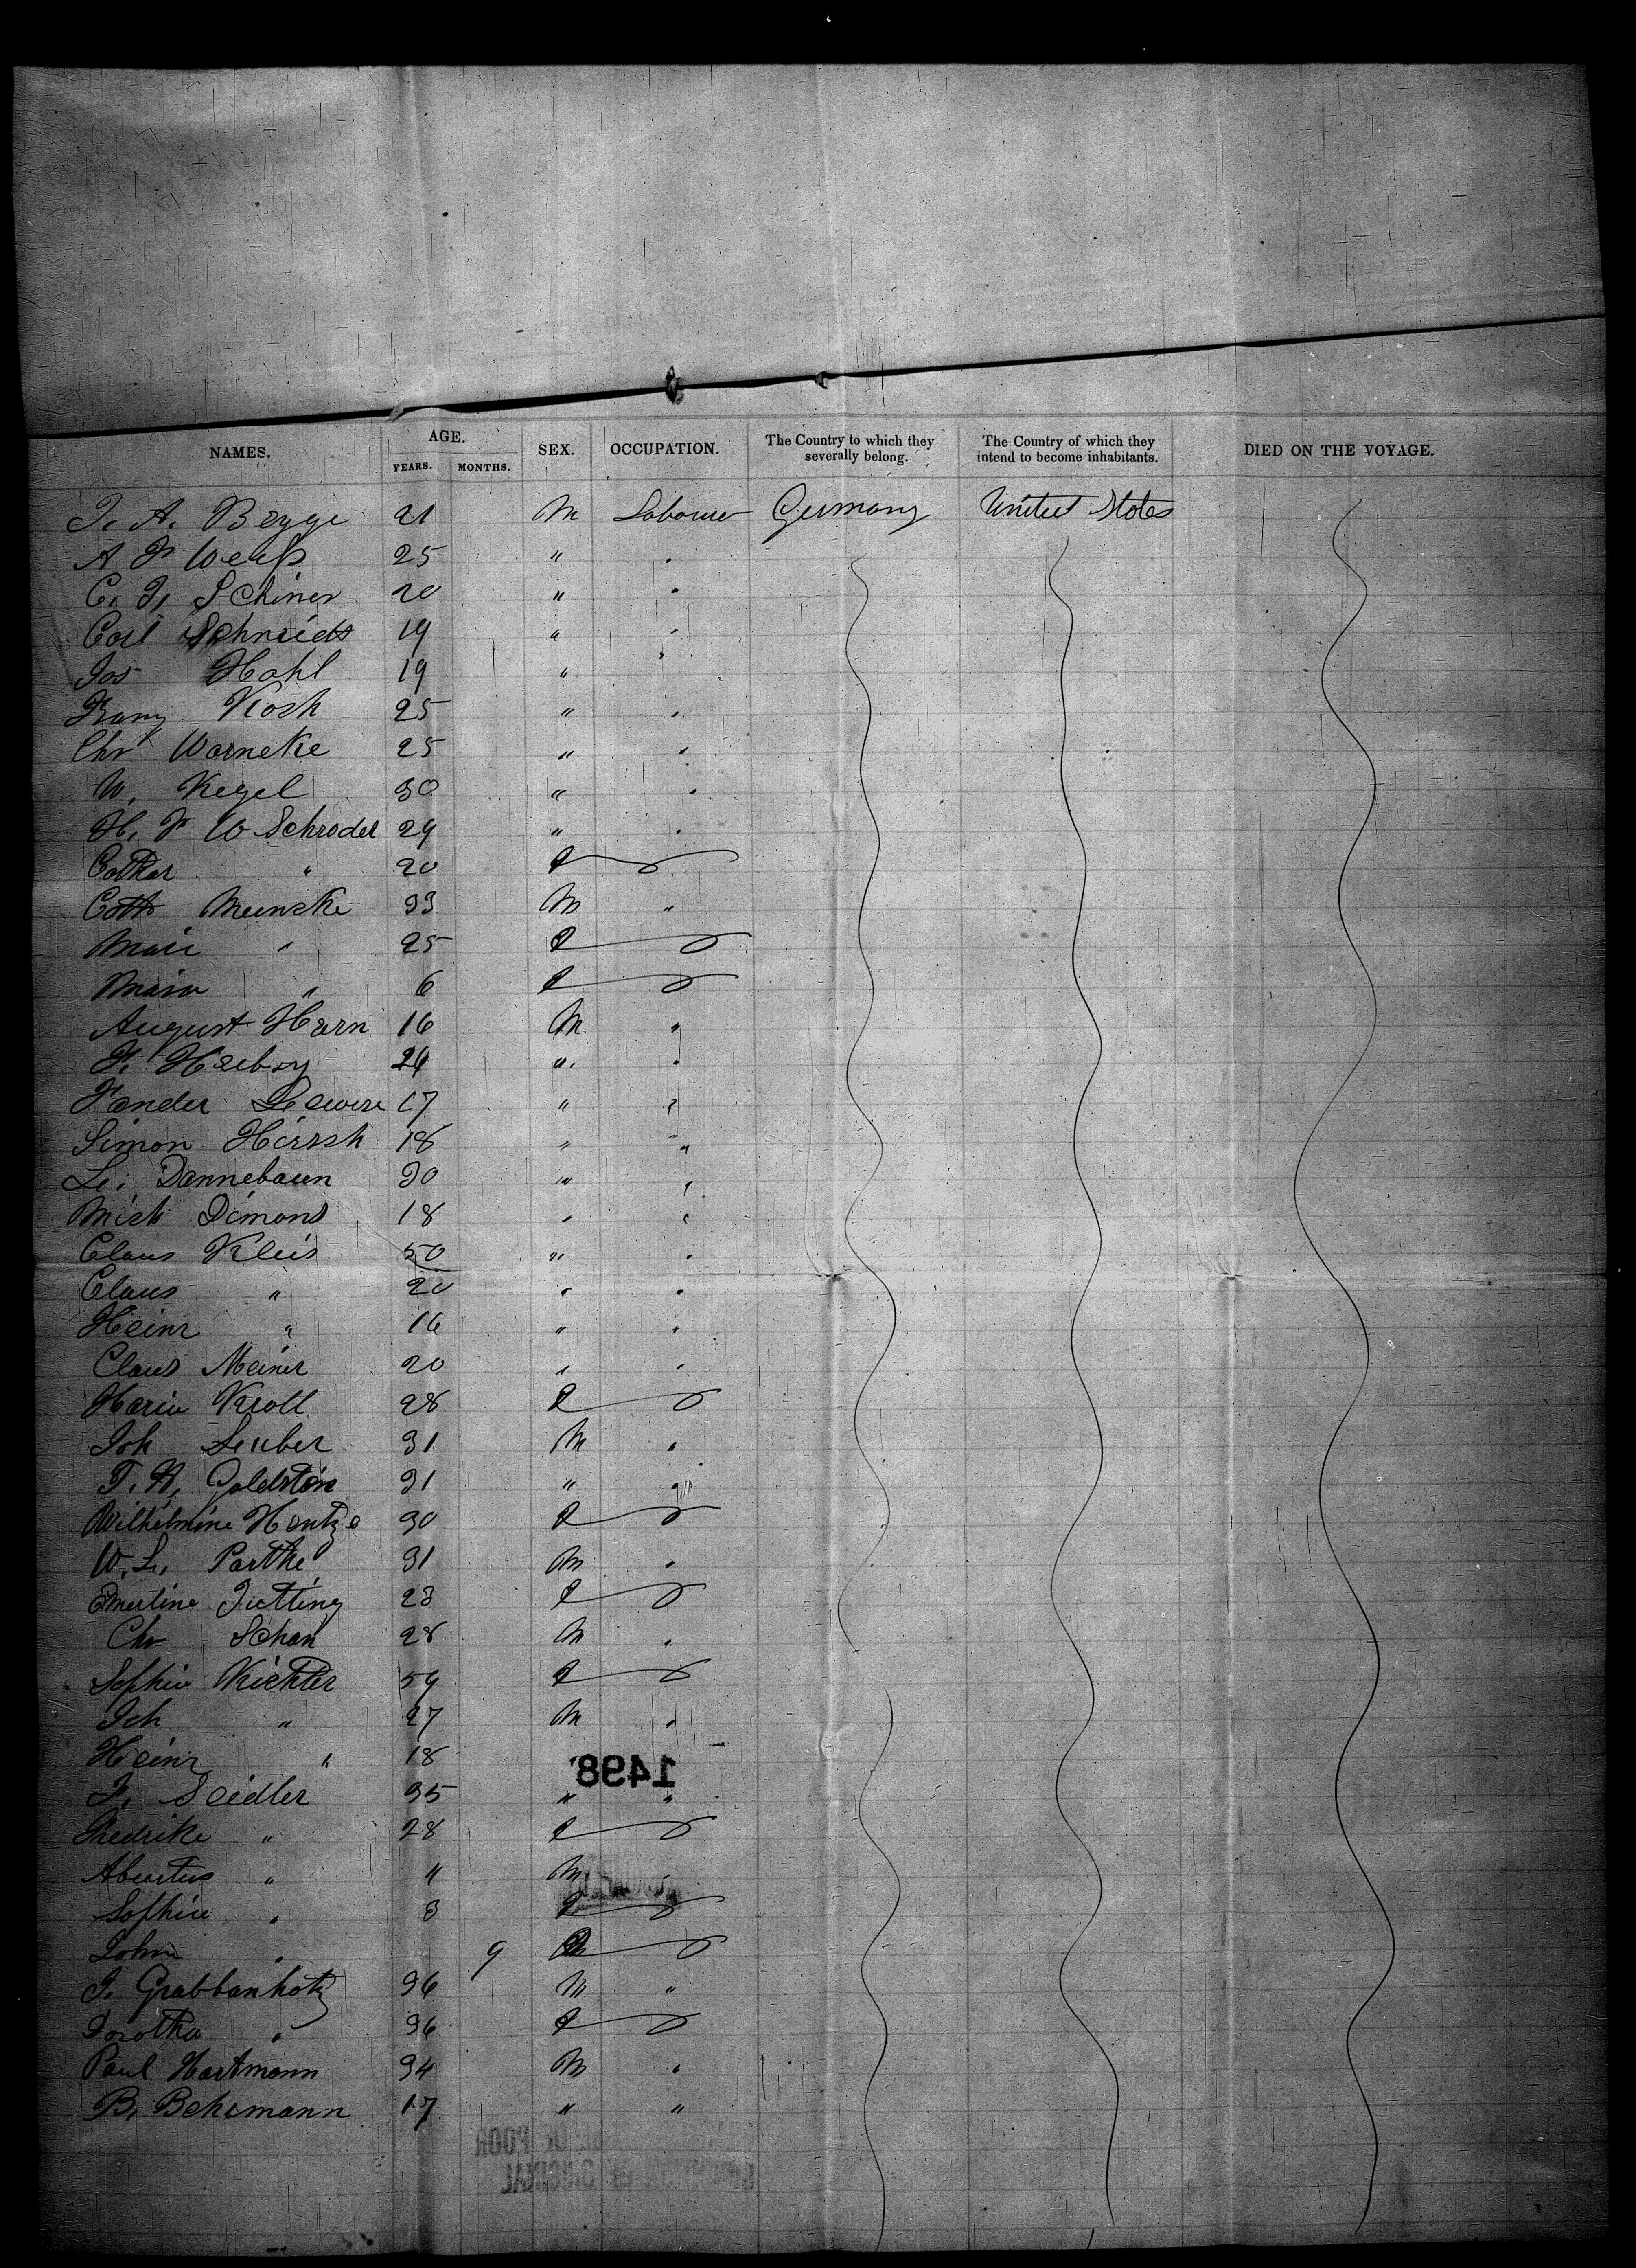 NAMES. AGE. YEARS. MONTHS. SEX. OCCUPATION. The Country to which they severally belong. The Country of which they intend to become inhabitants. DIED ON THE VOYAGE.
J. A. Begge 21 M Labourer Germany United States
A F Weiß 25 "
C. F. Schiner 20 "
Carl Schmidt 19 "
Jos Hahl 19 "
Franz Kosh 25 "
Chr Warneke 25 "
W. Kegel 30 "
H. F W Schroder 29 "
Cathar " 20 F
Gott Meinske 33 M "
Marie " 25 F
Maria " 6 F
August Harn 16 M "
F. 24 "
17 "
Simon Hirrsh 18 " "
Le. Dannebaum 30 "
Mich Dimond 18 "
Claus Kleis 50 "
Claus " 20 "
Heinr " 16 "
Claus Meiner 20 "
Maria Kroll 28 F
Joh Leuber 31 M "
T. H. Goldstein 31 "
Wilhelmine Hentze 30 F
W. L. Parthe 31 M "
Emerline Fietting 23 F
Chr Schan 28 M "
Sophie Richter 59 F
Joh " 27 M "
Heinr " 18
1498
F. Seidler 35 " "
Fredrike " 28 F
" 11 M
Sophie " 8 F
John " 9
J. Grabbanhotz 36 M "
Dorothea " 36 F
Paul Hartmann 34 M "
B. Behrmann 17 " "
POOR
ORIGINAL